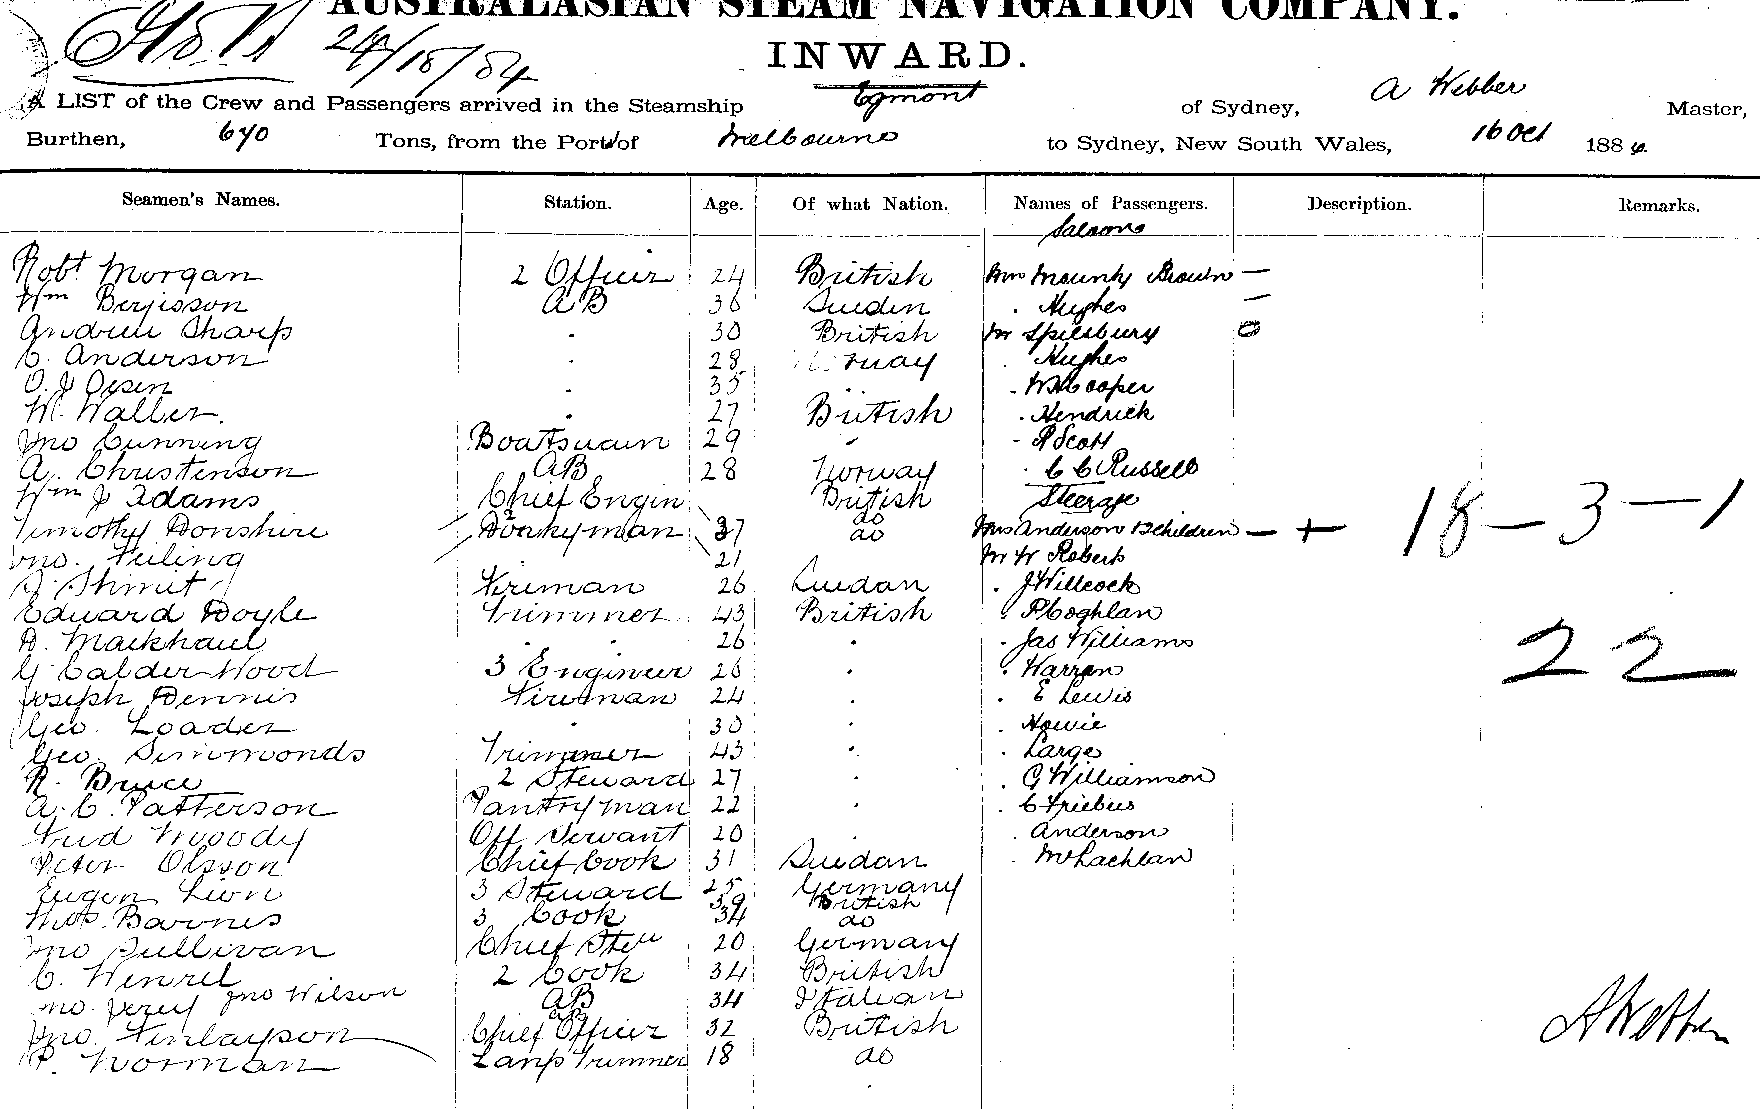 AUSTRALASIAN STEAM NAVIGATION COMPANY.
INWARD.
A LIST of the Crew and Passengers arrived in the Steamship Egmont of Sydney, A Webber Master,
Burthen, 670 Tons, from the Port of Melbourne to Sydney, New South Wales, 16 Oct 1884
Seamen's Names. Station. Age. Of what Nation. Names of Passengers. Description. Remarks.
Saloons
Robt Morgan 2 Officer 24 British Brown —
Wm AB 36 Sueden Hughes —
Andrew Sharp . 30 British Mr Spilsbury
C. Anderson . 28 Hughes
O. J Olsen . 35 Cooper
W. Waller. . 27 British Hendrick
Jno Cunning Boatsuain 29 R Scott
A. Christenson AB 28 Norway C C Russell
Wm J Adams Chief Engin British Steerage
Timothy Donshire Donkyman 37 do Mrs Anderson children — + 18 — 3 — 1
Jno. 21 Mr W Roberts
J Fireman 26 Suedan J Willcock
Eduard Doyle Trimmer 43 British P Coghlan
D. 26 Jas Williams
G Calder Wood 3 Engineer 26 Warren 22
Joseph Dennis Fireman 24 E Lewis
Geo. Loader . 30 Howie
Geo. Simmonds Trimmer 43 Large
R. Bruce 2 Steward 27 G Williamson
A. C. Patterson Pantryman 22 C Friebus
Off Servant 20 Anderson
Peter Olsson Chief Cook 31 Suedan McLachlan
Eugen Lion 3 Steward 25 Germany
Thos. Barnes 3 Cook 39 34 British do
Jno Sullivan Chief 20 Germany
C. 2 Cook 34 British
Jno. Jno Wilson AB 34 Italian
Jno. Finlayson Chief Officer 32 British
P. Norman Lamp Trimmer 18 do
A Webber